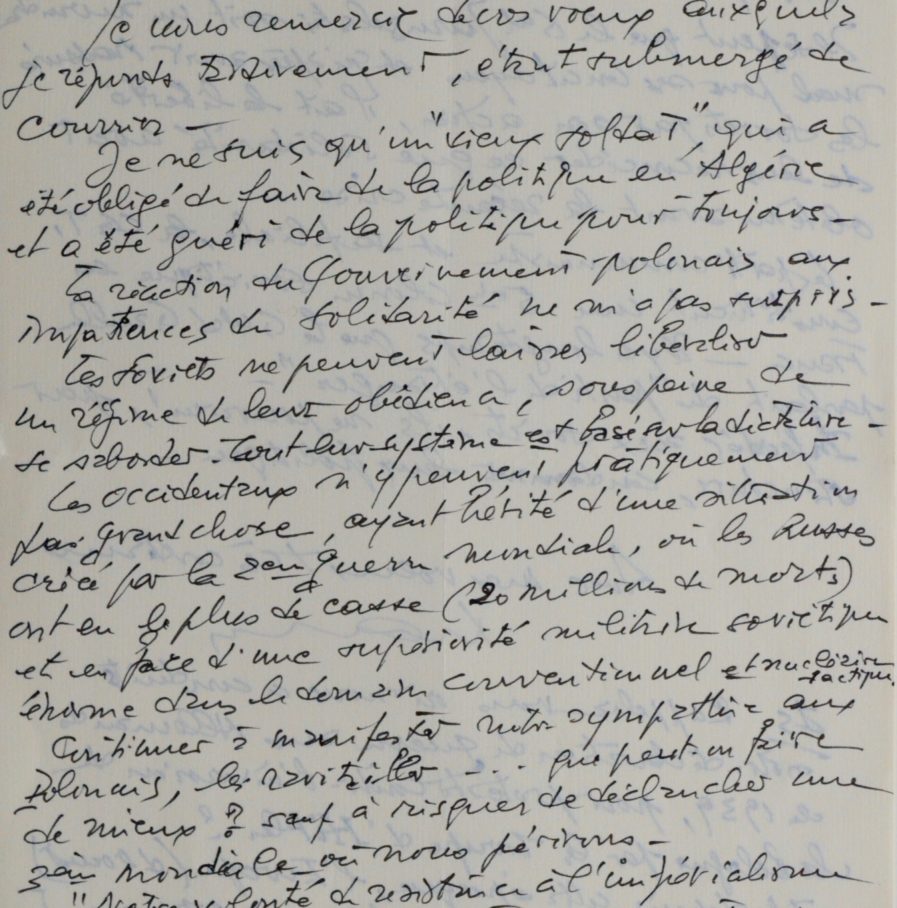 Je vous remercie de vos voeux auxquels
je réponds tardivement, étant submergé de
courrier —
Je ne suis qu'un "vieux soldat", qui a
été obligé de faire de la politique en Algérie
et a été guéri de la politique pour toujours —
La réaction du Gouvernement polonais aux
impatiences de Solidarité ne m'a pas surpris —
Les Soviets ne peuvent laisser libérer
un régime de leur obédience, sous peine de
se saborder. Tout leur système est basé sur la dictature —
Les occidentaux n'y peuvent pratiquement
pas grand chose, ayant hérité d'une situation
créée par la 2ème guerre mondiale, où les Russes
ont eu le plus de casse (20 millions de morts)
et en face d'une supériorité militaire soviétique
énorme dans le domaine conventionnel et nucléaire
tactique.
Continuer à manifester notre sympathie aux
Polonais, les ravitailler ... que peut-on faire
de mieux ? sauf à risquer de déclancher une
3ème mondiale où nous périrons —
"Notre volonté de résistance à l'impérialisme